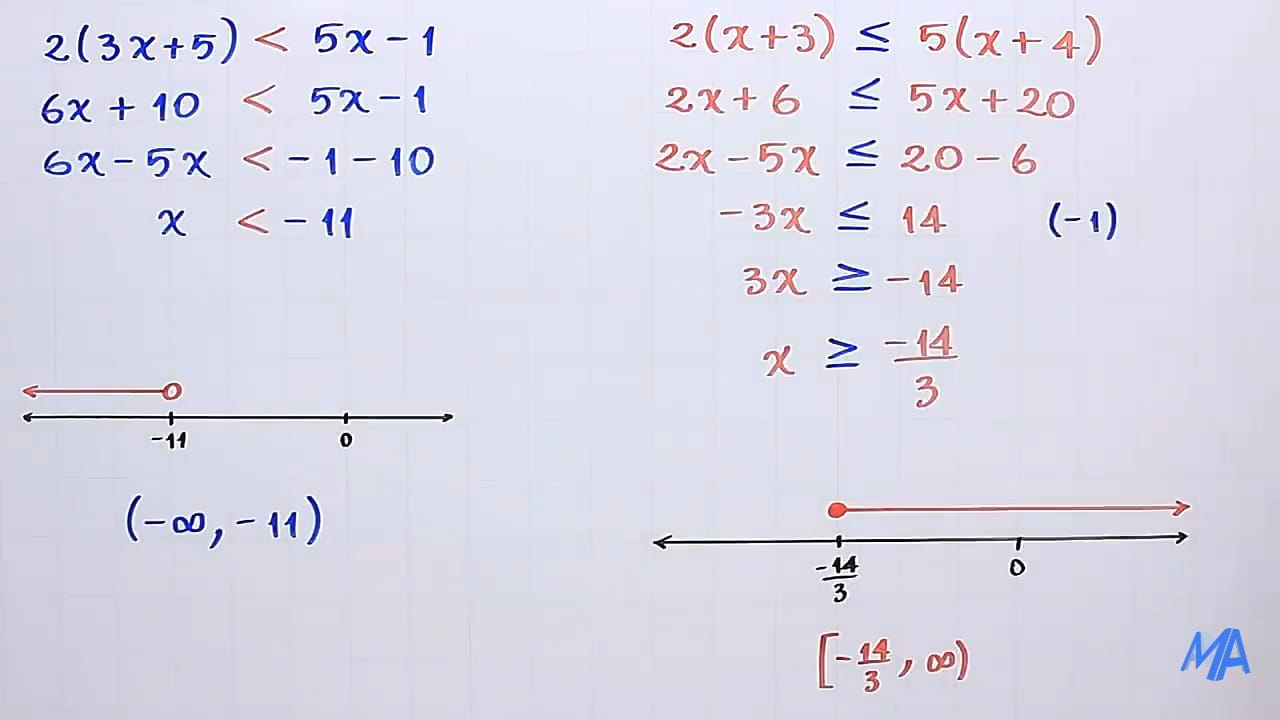 2(3x+5) < 5x-1
6x + 10 < 5x-1
6x-5x < -1-10
x < -11
-11 0
(-∞, -11)
2(x+3) ≤ 5(x+4)
2x+6 ≤ 5x+20
2x-5x ≤ 20-6
-3x ≤ 14 (-1)
3x ≥ -14
x ≥ -14/3
-14/3 0
[-14/3, ∞)
MA